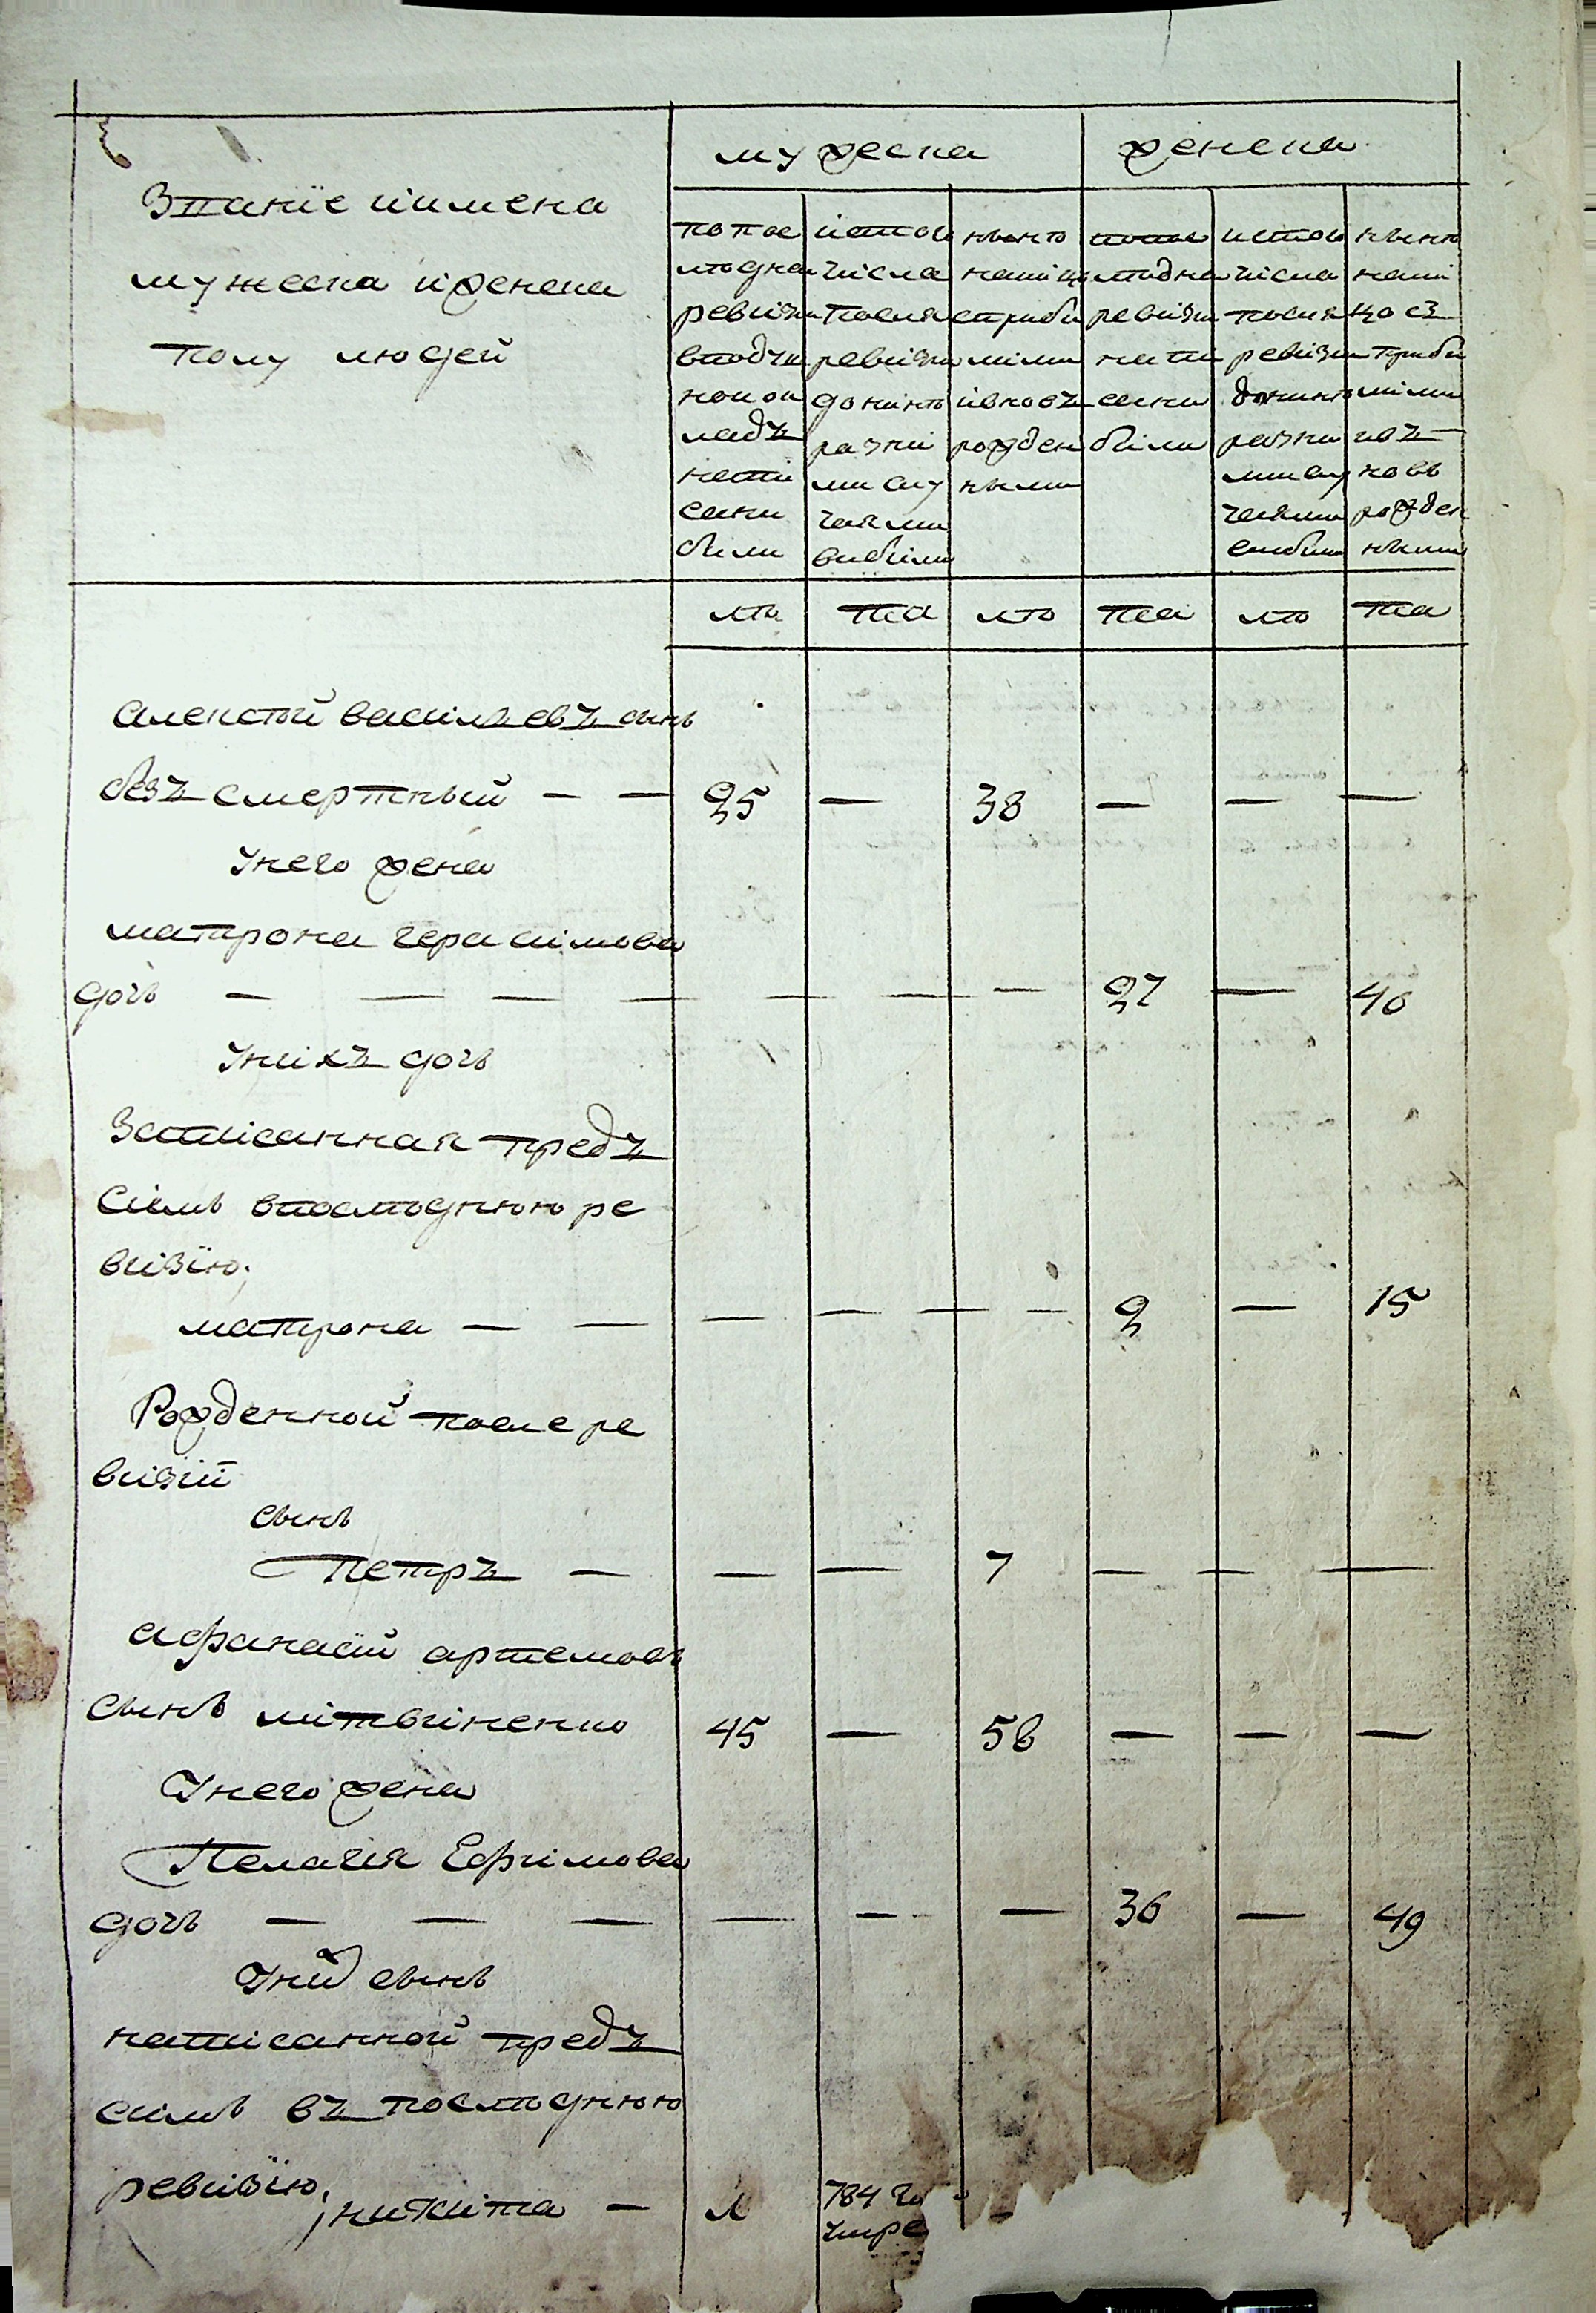 мужеска женска
Званїе иимена
мужеска иженска
полу людей
попос
лѣдней
ревизии
вподуш
номок
ладѣ
напи
саны
были
истого
числа
после
ревизии
доныне
разни
мислу
чаями
выбыли
ныне
налицо
сприбы
лыми
ивновь
рожден
ными
попос
лѣдней
ревизии
напи
саны
были
истого
числа
после
ревизии
доныне
разны
мислу
чаями
выбыли
ныне
нали
цо съ
прибы
лыми
ивъ
новь
рожден
ными
лѣ та лѣ та лѣ та
алексѣй васильевъ сынъ
безъсмертный — — 25 — 38 — — —
Унего жена
матрона герасимова
дочь — — — — — — — 27 — 40
Унихъ дочь
Записанная предъ
симъ впослѣднюю ре
визїю;
матрона — — — — — — 2 — 15
Рожденной после ре
визїи
сынъ
Петръ — — — 7 — — —
афанасїй артемовъ
сынъ литвиненко 45 — 58 — — —
Унего жена
Пелагея Ефимова
дочь — — — — — — 36 — 49
Унид сынъ
написанной предъ
симъ въ послѣднюю
ревизїю, никита — 784 го
умре